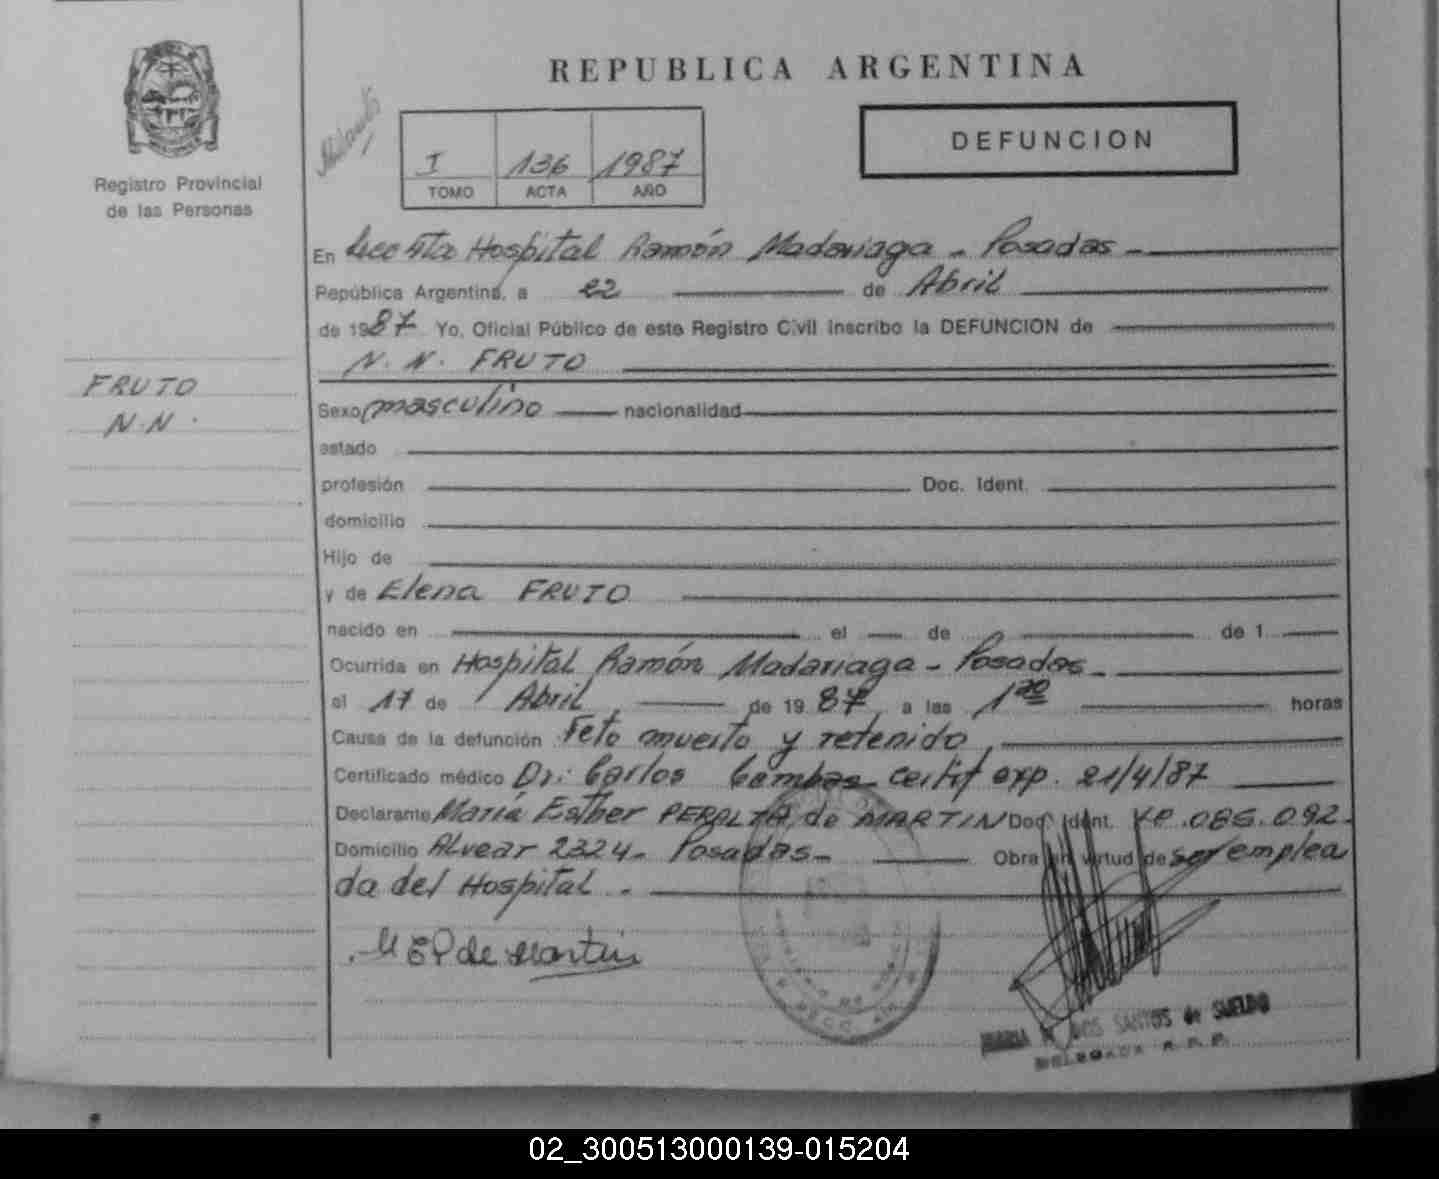 REPUBLICA ARGENTINA
DEFUNCION
I 136 1987
TOMO ACTA AÑO
Registro Provincial
de las Personas
En Secc 5ta Hospital Ramón Madariaga - Posadas -
República Argentina, a 22 de Abril
de 1987 Yo, Oficial Público de este Registro Civil inscribo la DEFUNCION de
N. N. FRUTO
FRUTO
N.N.
Sexo masculino nacionalidad
estado
profesión Doc. Ident.
domicilio
Hijo de
y de Elena FRUTO
nacido en el de de 1
Ocurrida en Hospital Ramón Madariaga - Posadas -
el 17 de Abril de 1987, a las 1 horas
Causa de la defunción Feto muerto y retenido,
Certificado médico Dr: Carlos certif exp. 21/4/87
Declarante María Esther PERALTA de MARTIN Doc. Ident. .085.092.
Domicilio Alvear 2324 - Posadas - Obra en virtud de ser emplea
da del Hospital .
M E P de Martin
DOS SANTOS de SUELDO
DELEGADA R.P.P.
02_300513000139-015204